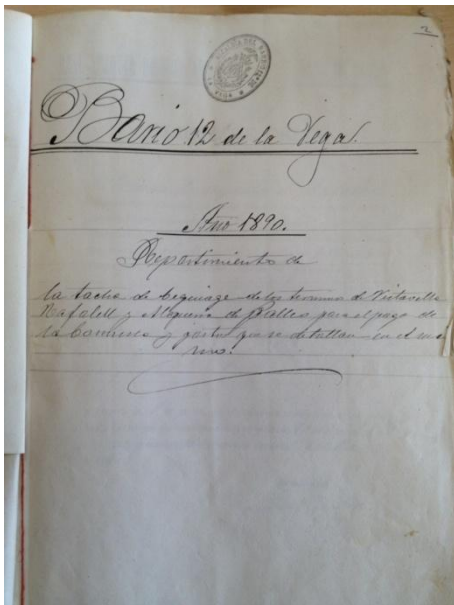 2
Bario 12 de la Vega.
Año 1890.
Repartimiento de
la tacha de cequiage de los terminos de Vistavella
Rafalell y Alqueria de Rallea para el pago de
la Comuna y gastos que se detallan en el mis
mo.